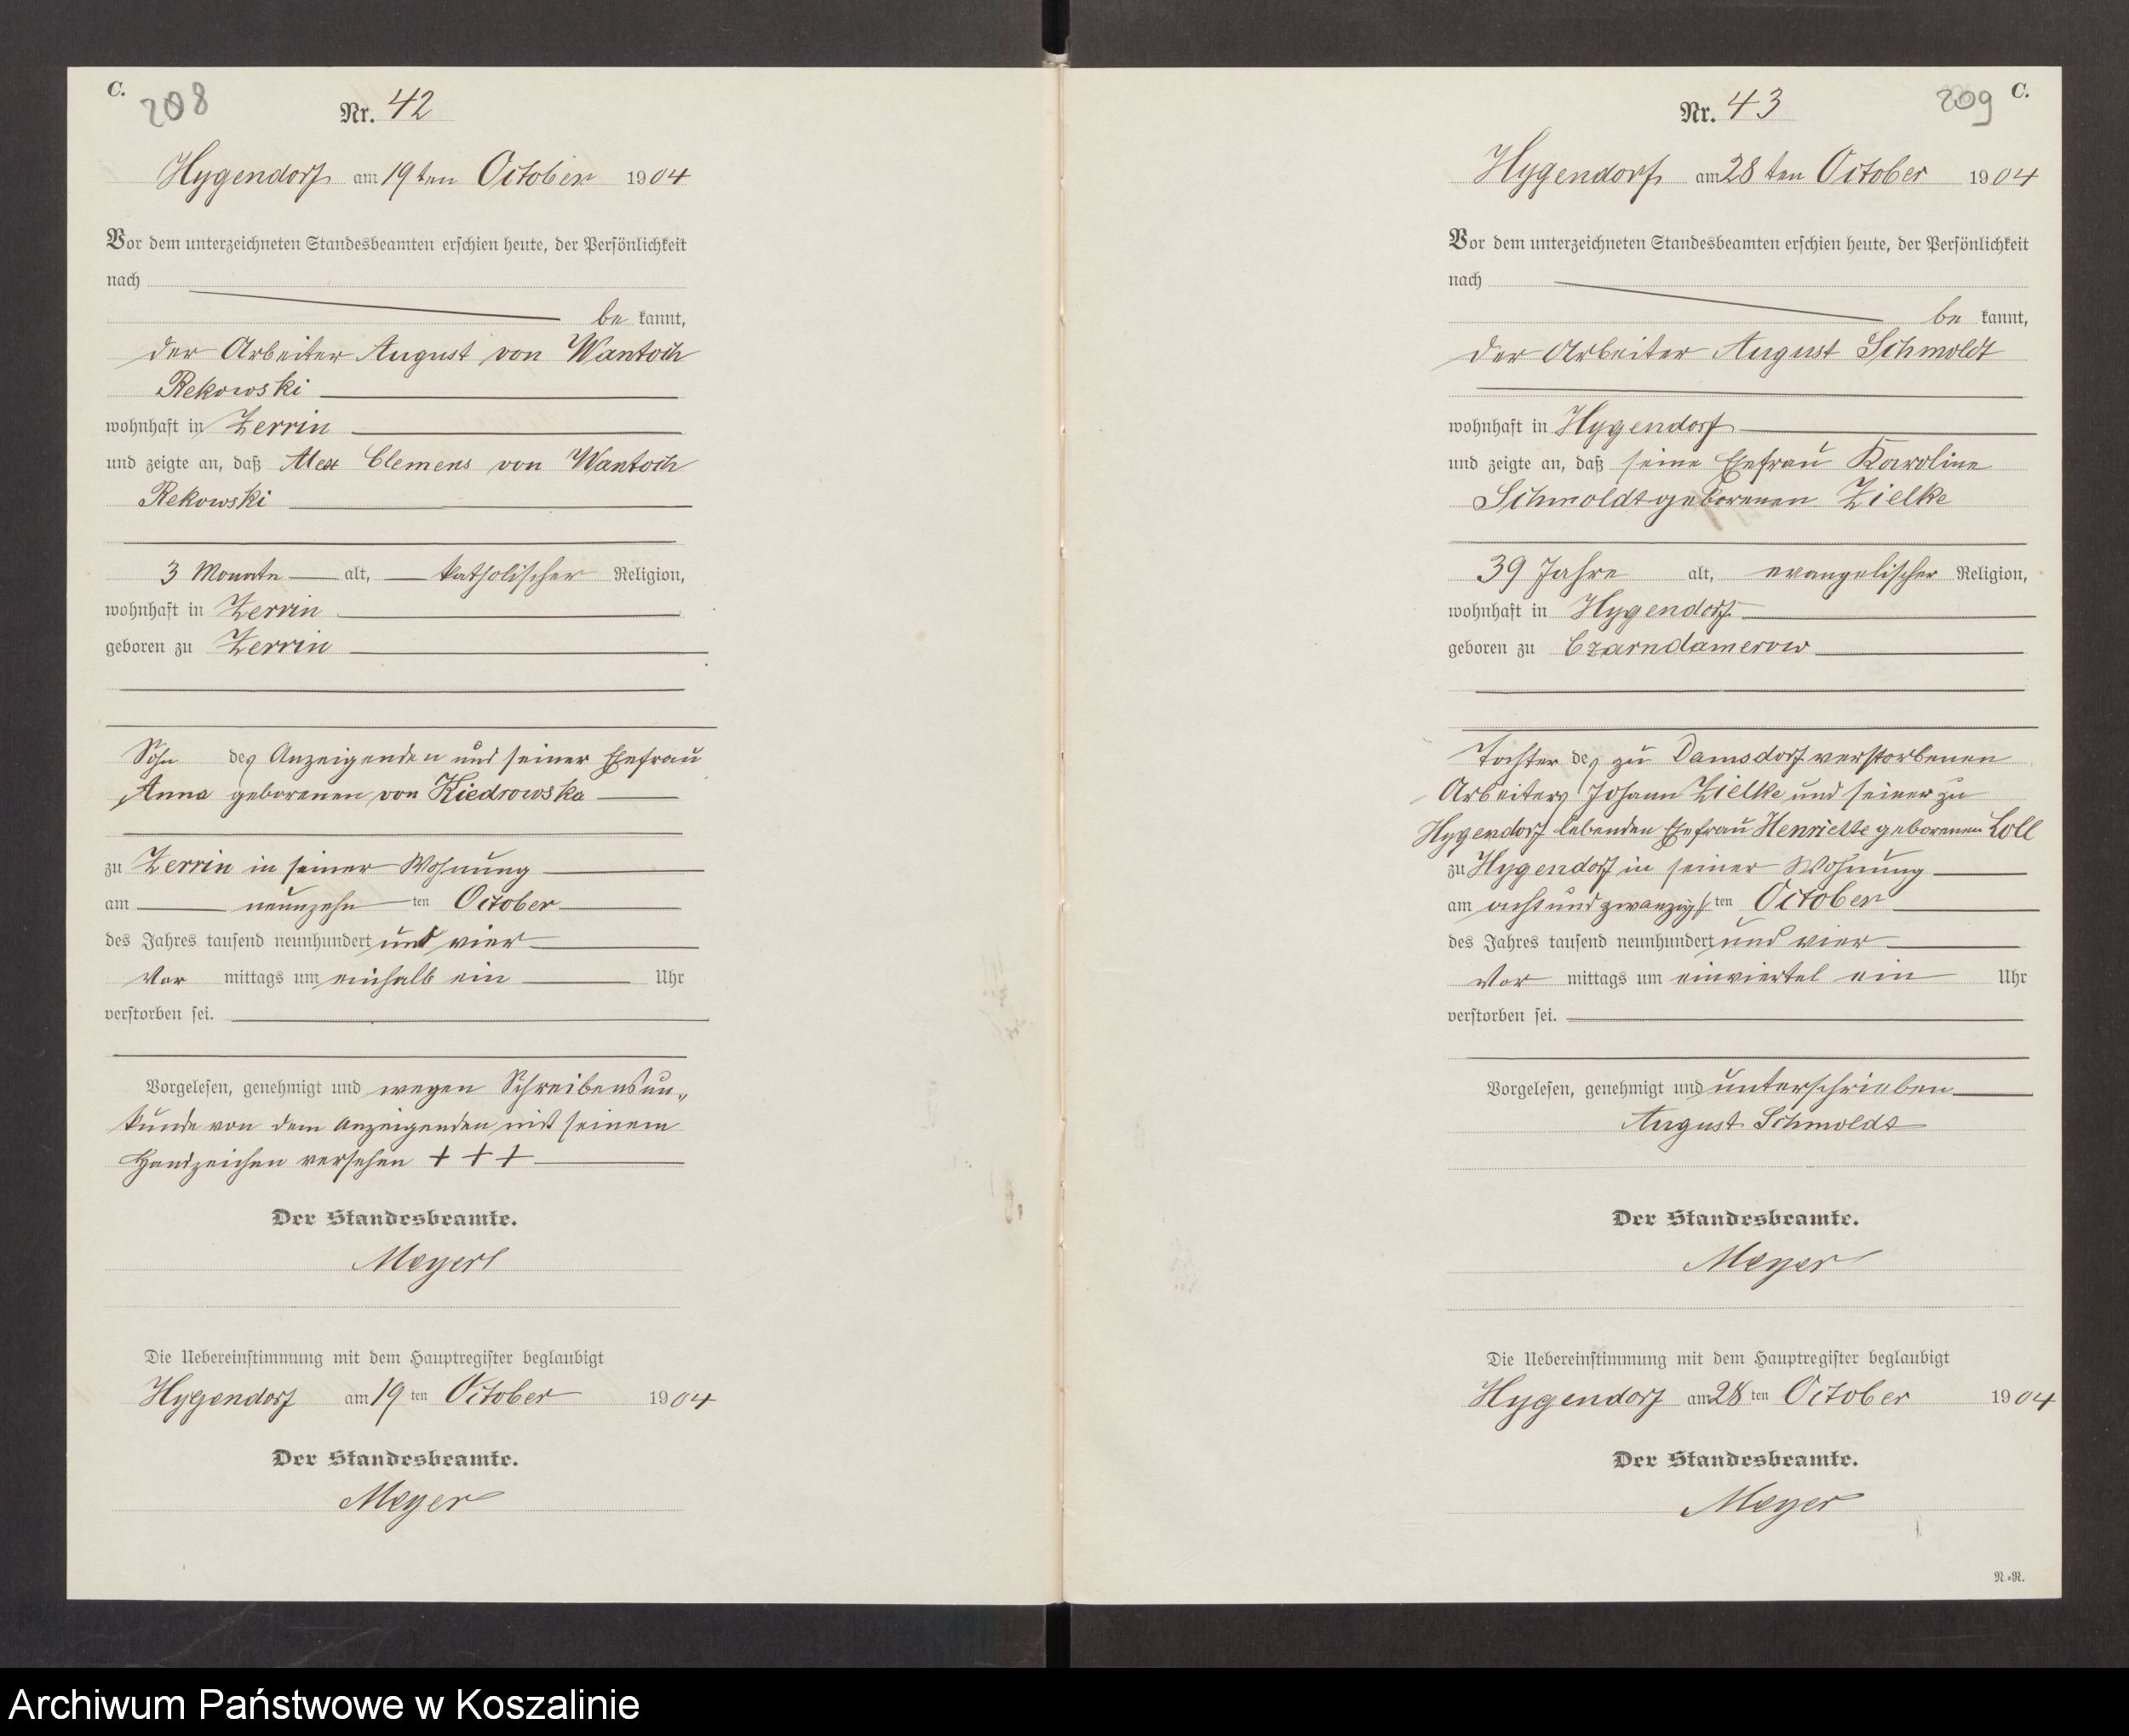 C.
208
Nr. 42
Hygendorf am 19ten October 1904
Vor dem unterzeichneten Standesbeamten erschien heute, der Persönlichkeit
nach
be kannt,
der Arbeiter August von Wantoch
Rekowski
wohnhaft in Zerrin
und zeigte an, daß Alex Clemens von Wantoch
Rekowski
3 Monate alt, katholischer Religion,
wohnhaft in Zerrin
geboren zu Zerrin
Sohn des Anzeigenden und seiner Ehefrau
Anna geborenen von Kiedrowska
zu Zerrin in seiner Wohnung
am neunzehn ten October
des Jahres tausend neunhundert und vier
Vor mittags um einhalb ein Uhr
verstorben sei.
Vorgelesen, genehmigt und wegen Schreibensun„
kunde von dem Anzeigenden mit seinem
Handzeichen versehen + + +
Der Standesbeamte.
Meyer
Die Uebereinstimmung mit dem Hauptregister beglaubigt
Hygendorf am 19 ten October 1904
Der Standesbeamte.
Meyer
209 C.
Nr. 43
Hygendorf am 28 ten October 1904
Vor dem unterzeichneten Standesbeamten erschien heute, der Persönlichkeit
nach
be kannt,
der Arbeiter August Schmoldt
wohnhaft in Hygendorf
und zeigte an, daß seine Ehefrau Karoline
Schmoldt geborenen Zielke
39 Jahre alt, evangelischer Religion,
wohnhaft in Hygendorf
geboren zu Czarndamerow
Tochter des zu Damsdorf verstorbenen
Arbeiters Johann Zielke und seiner zu
Hygendorf lebenden Ehefrau Henriette geborenen Loll
zu Hygendorf in seiner Wohnung
am achtundzwanzigs ten October
des Jahres tausend neunhundert und vier
Vor mittags um einviertel ein Uhr
verstorben sei.
Vorgelesen, genehmigt und unterschrieben
August Schmoldt
Der Standesbeamte.
Meyer
Die Uebereinstimmung mit dem Hauptregister beglaubigt
Hygendorf am 28 ten October 1904
Der Standesbeamte.
Meyer
N.=R.
Archiwum Państwowe w Koszalinie